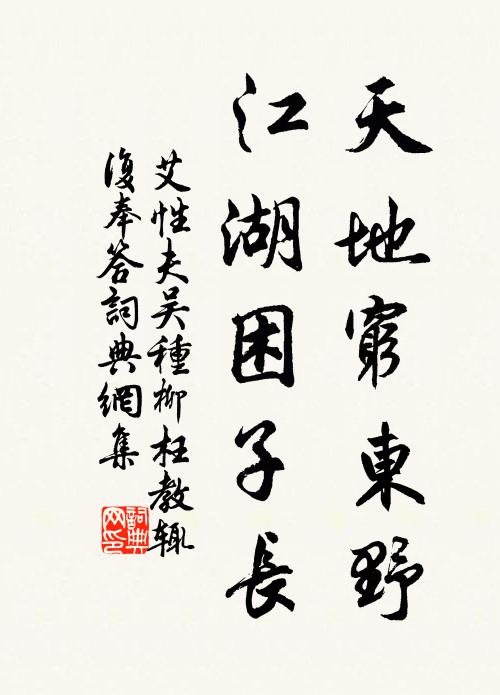 天地窮東野
江湖困子長
艾性夫吳種柳枉教輒
復奉答詞典網集
詞典網印